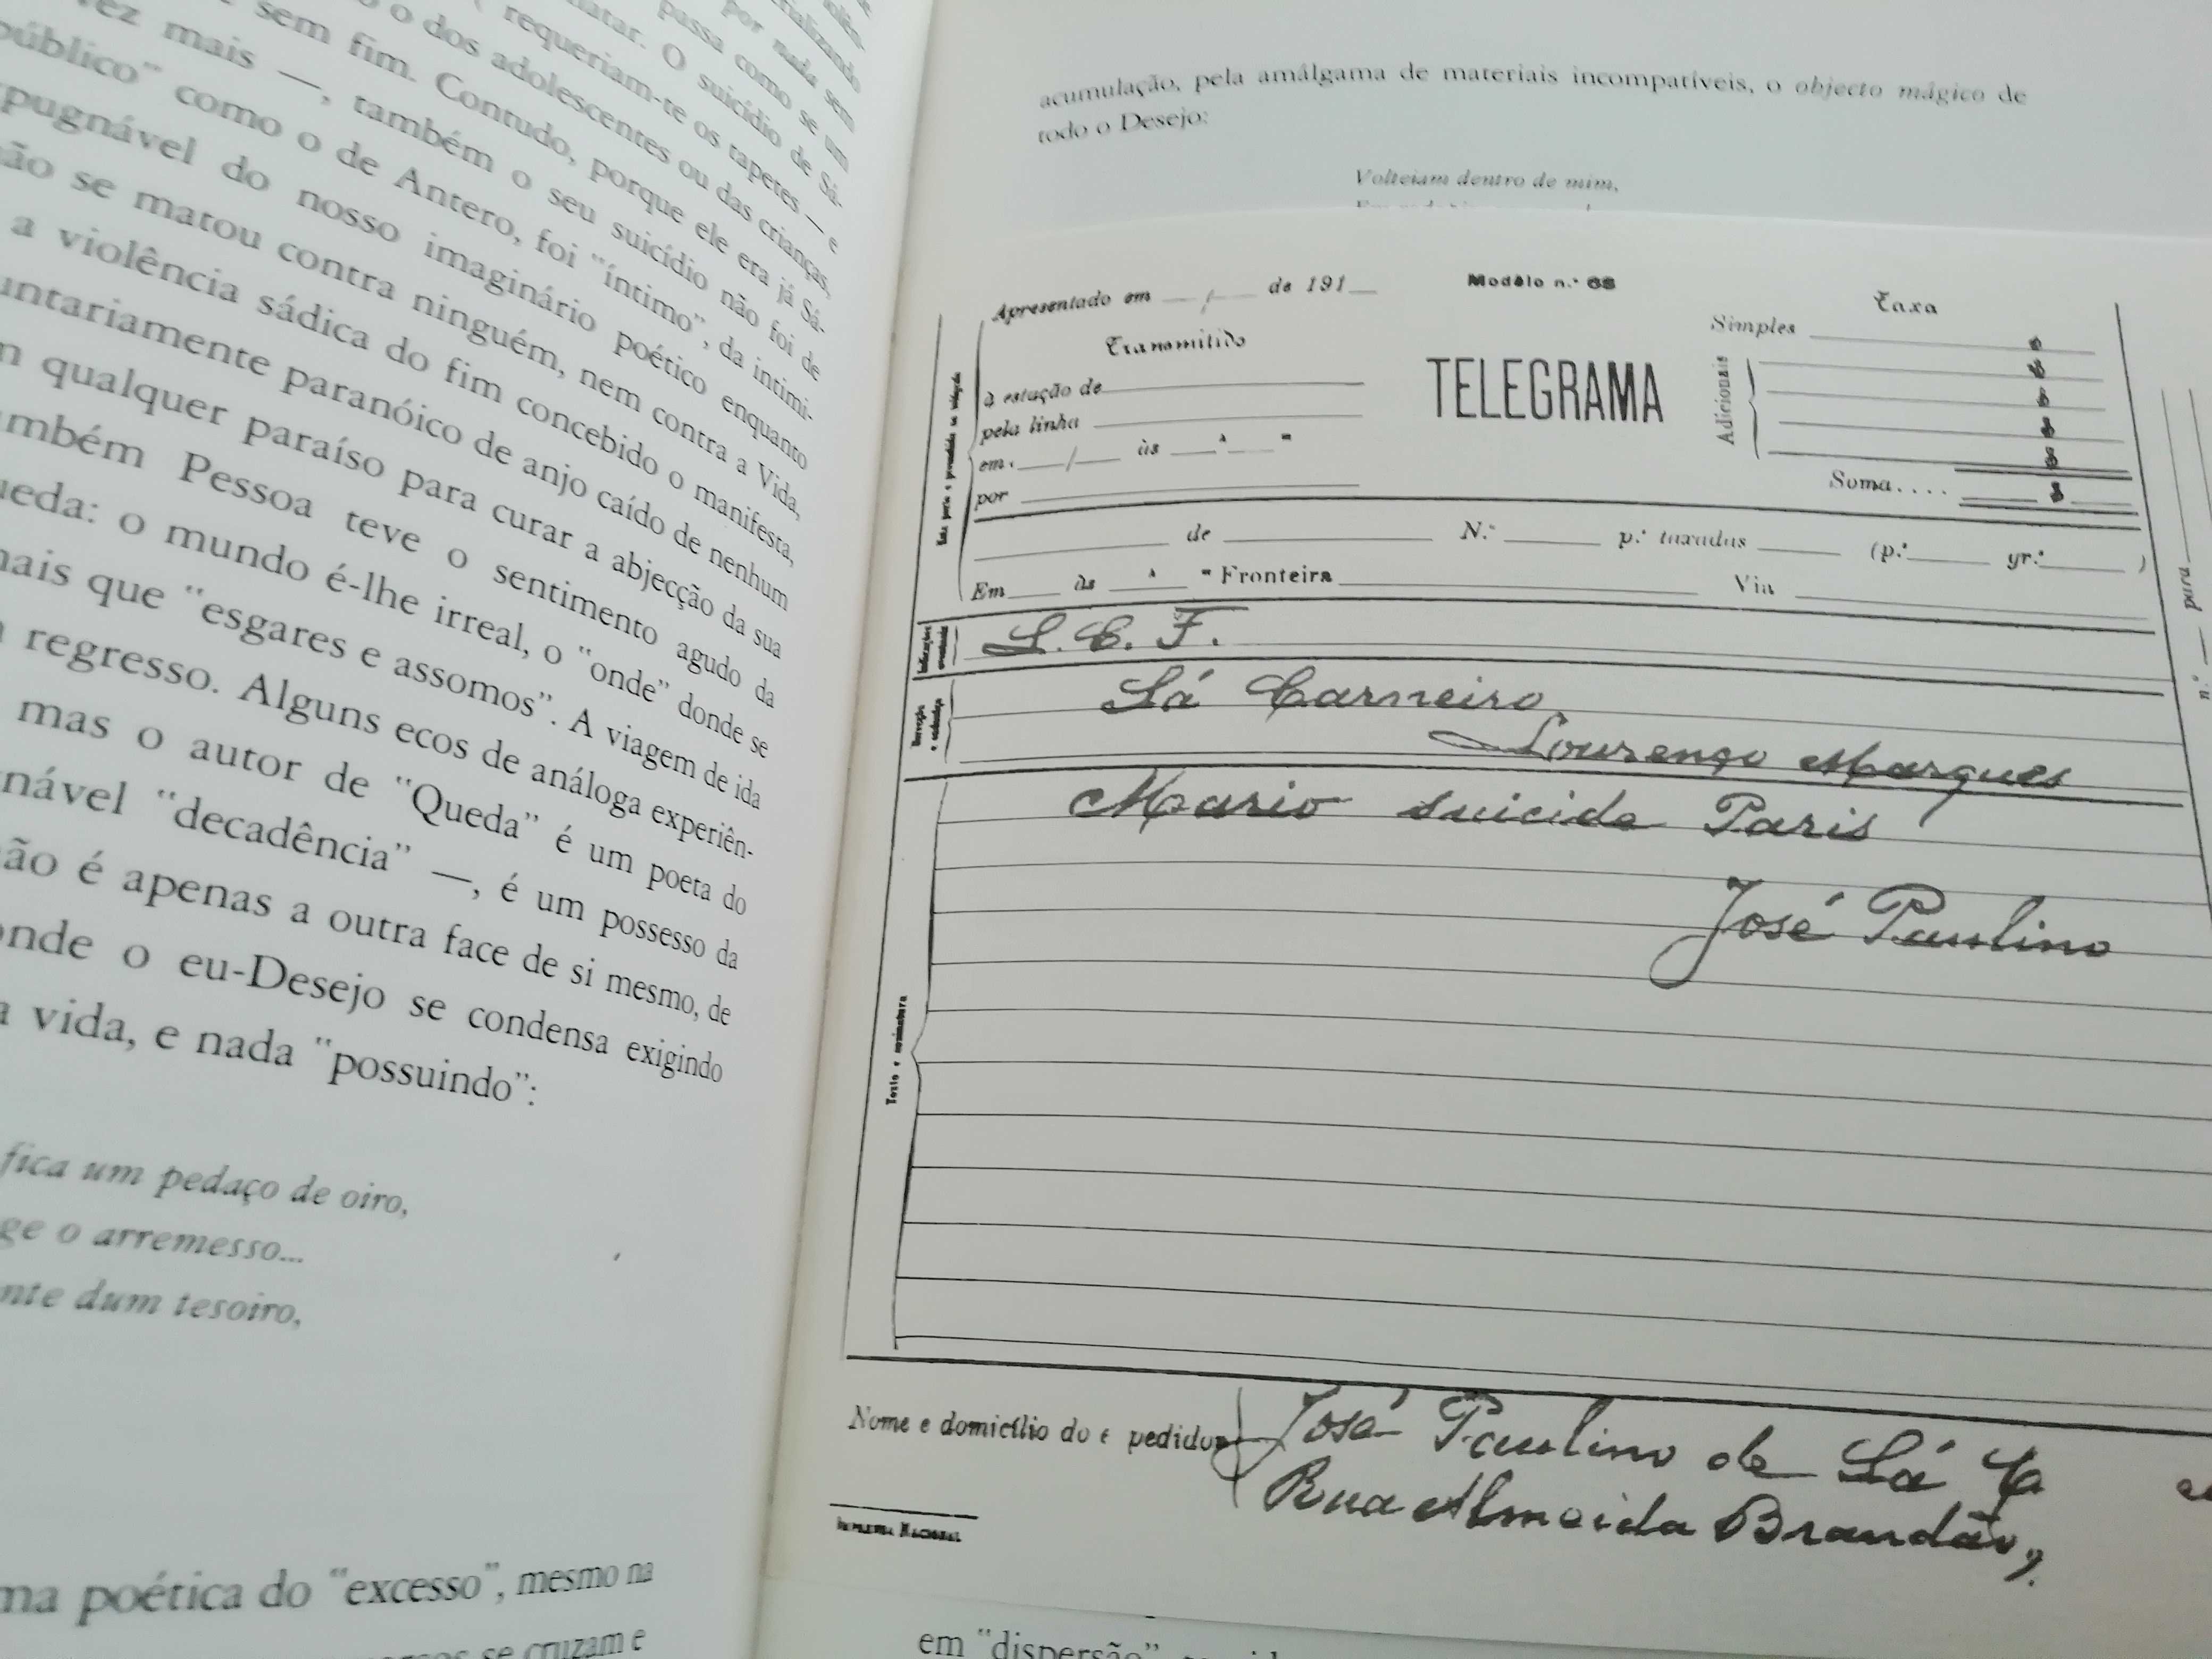 por nada sem
passa como se um
matar. O suicídio de Sá-
requeriam-te os tapetes — e
o dos adolescentes ou das crianças,
sem fim. Contudo, porque ele era já Sá-
mais —, também o seu suicídio não foi de
público" como o de Antero, foi "íntimo", da intimi-
do nosso imaginário poético enquanto
se matou contra ninguém, nem contra a Vida,
a violência sádica do fim concebido o manifesta,
paranóico de anjo caído de nenhum
qualquer paraíso para curar a abjecção da sua
Pessoa teve o sentimento agudo da
o mundo é-lhe irreal, o "onde" donde se
que "esgares e assomos". A viagem de ida
regresso. Alguns ecos de análoga experiên-
mas o autor de "Queda" é um poeta do
"decadência" —, é um possesso da
é apenas a outra face de si mesmo, de
o eu-Desejo se condensa exigindo
vida, e nada "possuindo":
fica um pedaço de oiro,
o arremesso...
dum tesoiro,
poética do "excesso", mesmo na
se cruzam e
acumulação, pela amálgama de materiais incompatíveis, o objecto mágico de
todo o Desejo:
Volteiam dentro de mim,
Apresentado em __/__ de 191__
Transmitido
à estação de
pela linha
em __/__ às
por
Modêlo n.º 68
TELEGRAMA
Taxa
Simples
Adicionais
Soma....
de N.º p.ª taxadas (p.ª yr.ª )
Em às Fronteira Via
S. C. F.
Sá Carneiro
Lourenço Marques
Mario suicido Paris
José Paulino
Texto e assinatura
Nome e domicílio do e pedidor
José Paulino de Sá C
Rua Almeida Brandão,
Imprensa Nacional
n.º — para
em "dispersão"